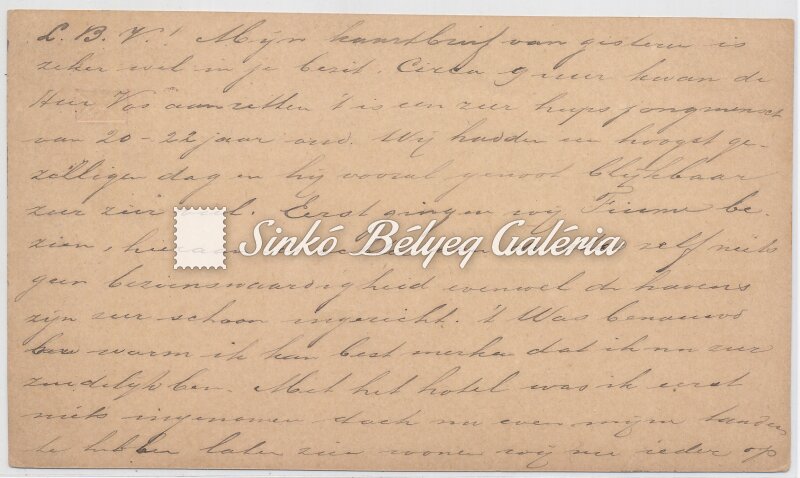 L. B. V.! Mijn kaartbrief van gisteren is
zeker wel in je bezit. Circa 9 uur kwam de
Heer Vos aanzetten 't is een zeer heups jongmensch
van 20-22 jaar oud. Wij hadden een hoogst ge-
zelligen dag en hij vooral genoot blijkbaar
zeer veel. Eerst gingen wij Fiume be-
zien, zelf niets
Sinkó Bélyeg Galéria
geen bezienswaardigheid evenwel de havens
zijn zeer schoon ingericht. 't Was benauwd
warm ik kan best merken dat ik nu zeer
zuidelijk ben. Met het hotel was ik eerst
niets ingenomen doch na even mijn handen
te hebben laten zien wonen wij nu ieder op